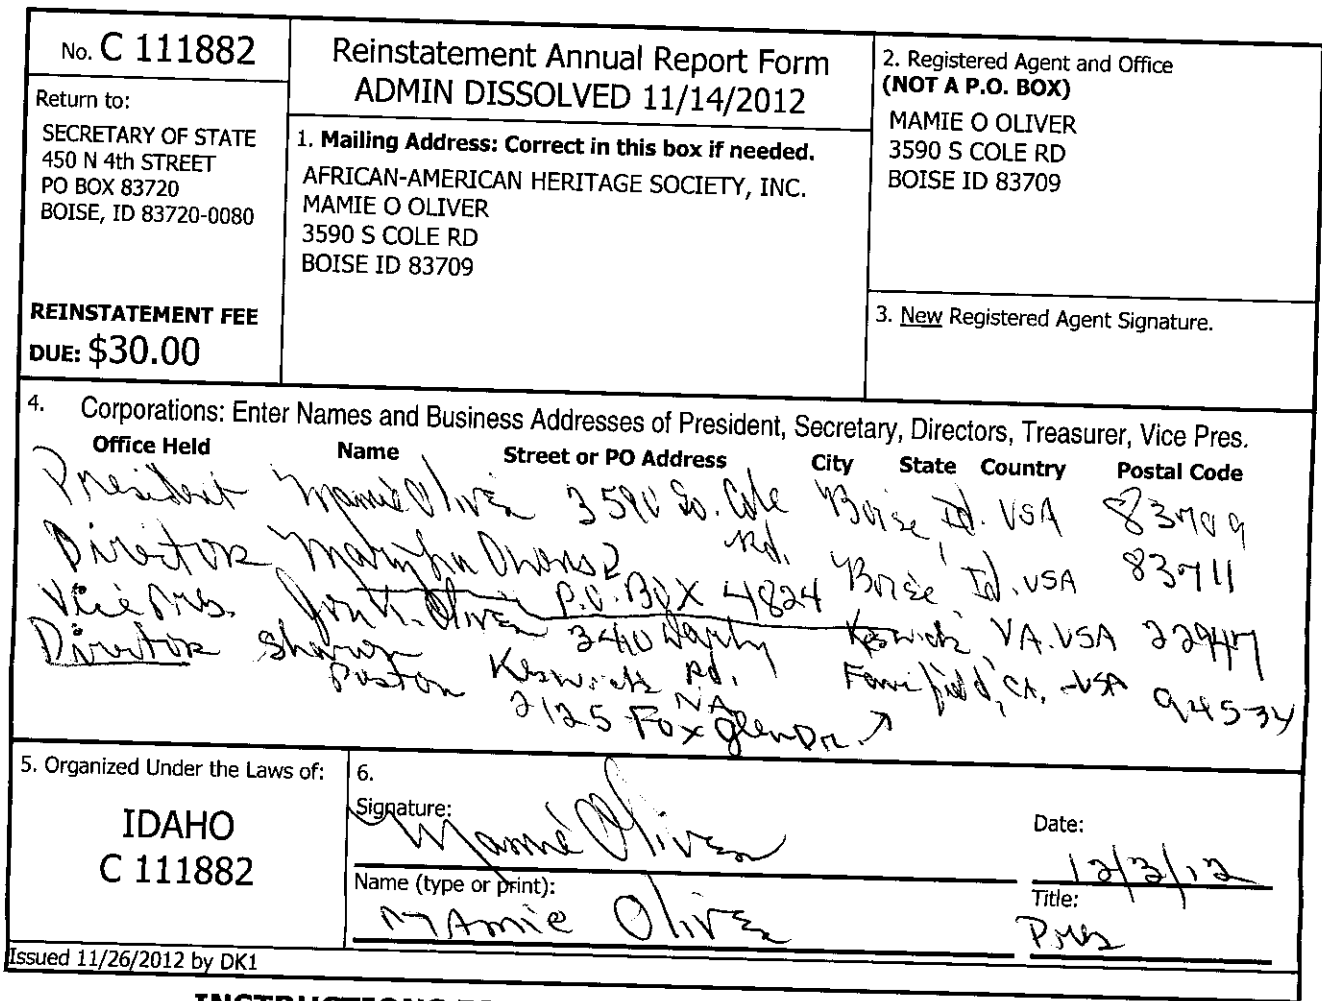 No. C 111882
Return to:
SECRETARY OF STATE
450 N 4th STREET
PO BOX 83720
BOISE, ID 83720-0080
REINSTATEMENT FEE
DUE: $30.00
Reinstatement Annual Report Form
ADMIN DISSOLVED 11/14/2012
1. Mailing Address: Correct in this box if needed.
AFRICAN-AMERICAN HERITAGE SOCIETY, INC.
MAMIE O OLIVER
3590 S COLE RD
BOISE ID 83709
2. Registered Agent and Office
(NOT A P.O. BOX)
MAMIE O OLIVER
3590 S COLE RD
BOISE ID 83709
3. New Registered Agent Signature.
4. Corporations: Enter Names and Business Addresses of President, Secretary, Directors, Treasurer, Vice Pres.
Office Held Name Street or PO Address City State Country Postal Code
President Mamie Oliver 3590 So. Cole Rd. Boise, Id. USA 83709
Director P.O. BOX 4824 Boise, Id. USA 83711
Vice Pres. Oliver 3440 Keswick Rd. Keswick VA. USA 22947
Director Sharon Poston 2125 Fox Glen Dr. Fairfield, CA, USA 94534
5. Organized Under the Laws of:
IDAHO
C 111882
6.
Signature: Mamie Oliver
Date: 12/3/12
Name (type or print): MAmie Oliver
Title: Pres
Issued 11/26/2012 by DK1